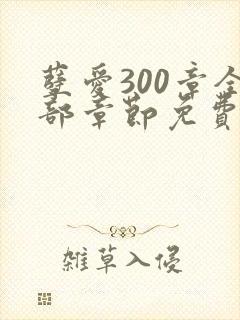 孽爱300章全
部章节免费
雑草入侵